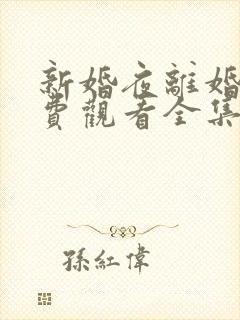 新婚夜離婚
費觀看全集
孫紅偉